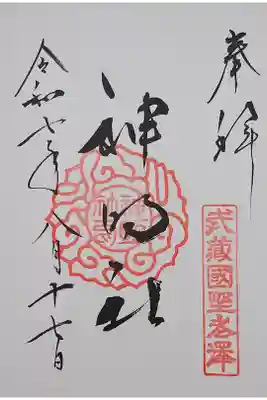 奉拝
武蔵國野老澤
神明社
令和七年八月十七日